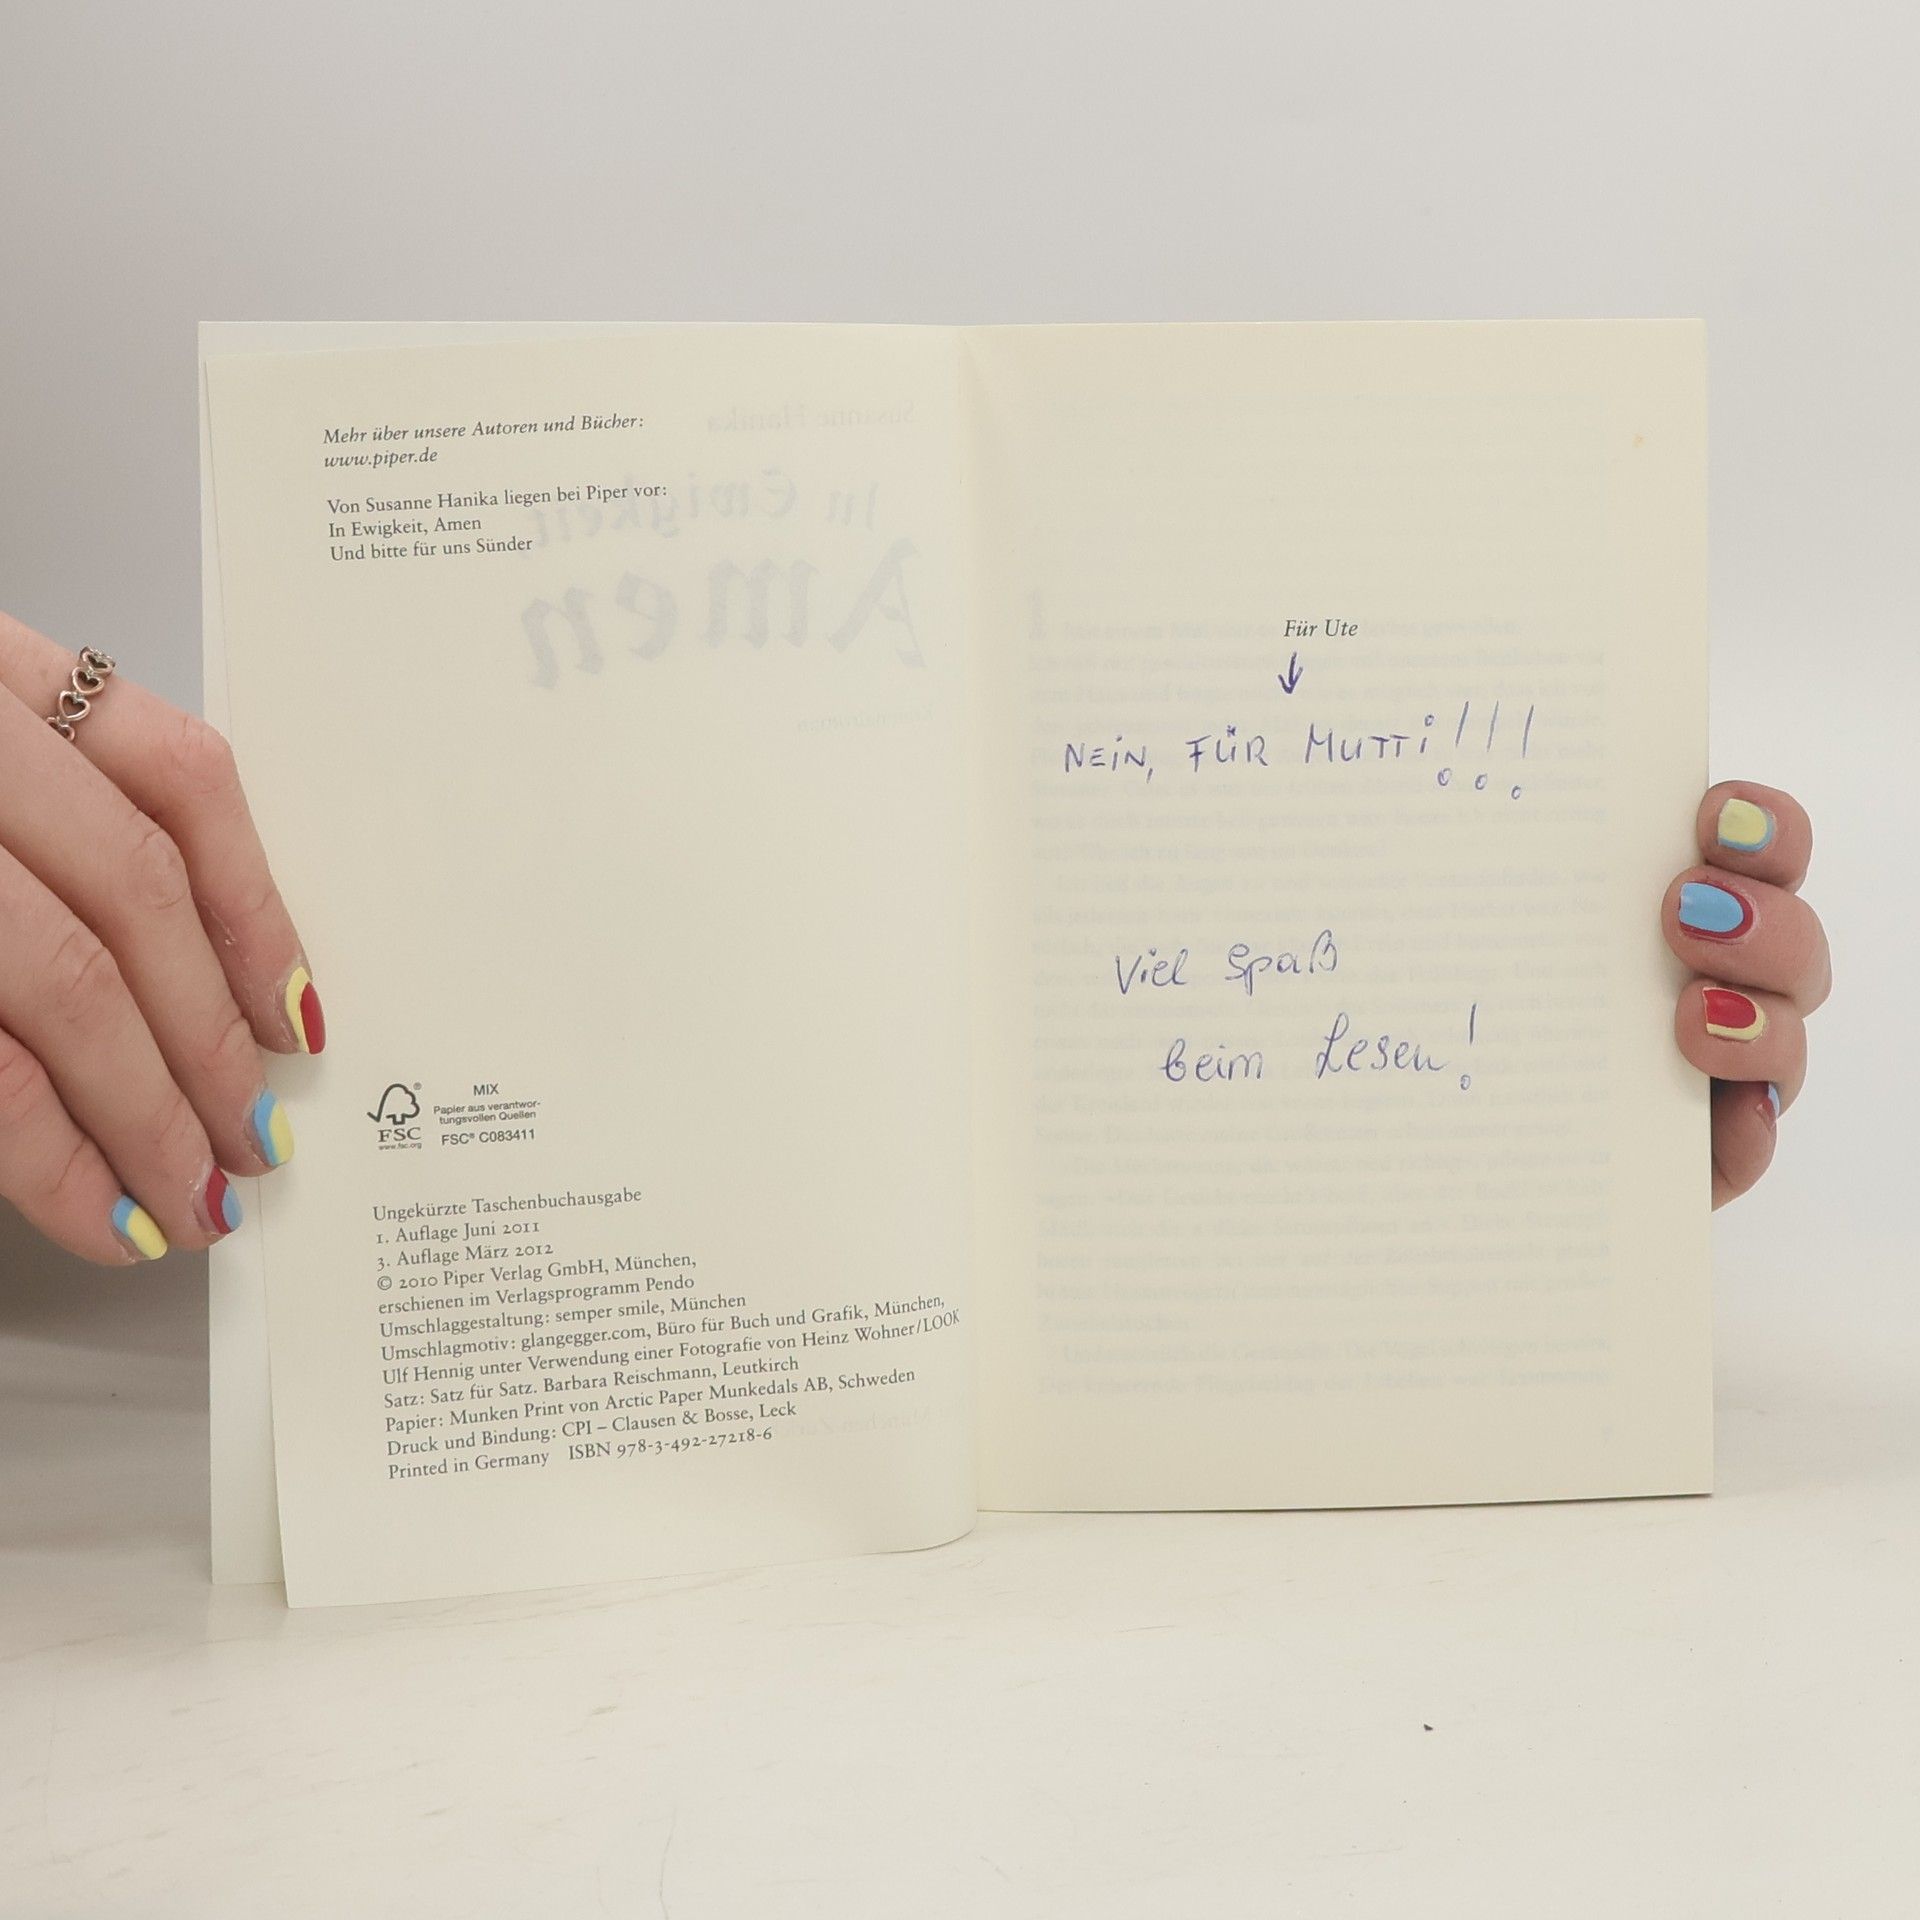 Mehr über unsere Autoren und Bücher:
www.piper.de
Von Susanne Hanika liegen bei Piper vor:
In Ewigkeit, Amen
Und bitte für uns Sünder
FSC
www.fsc.org
MIX
Papier aus verantwor-
tungsvollen Quellen
FSC® C083411
Ungekürzte Taschenbuchausgabe
1. Auflage Juni 2011
3. Auflage März 2012
© 2010 Piper Verlag GmbH, München,
erschienen im Verlagsprogramm Pendo
Umschlaggestaltung: semper smile, München
Umschlagmotiv: glangegger.com, Büro für Buch und Grafik, München,
Ulf Hennig unter Verwendung einer Fotografie von Heinz Wohner/LOOK
Satz: Satz für Satz. Barbara Reischmann, Leutkirch
Papier: Munken Print von Arctic Paper Munkedals AB, Schweden
Druck und Bindung: CPI – Clausen & Bosse, Leck
Printed in Germany ISBN 978-3-492-27218-6
Für Ute
NEiN, FÜR MUTTi!!!
Viel Spaß
beim Lesen!